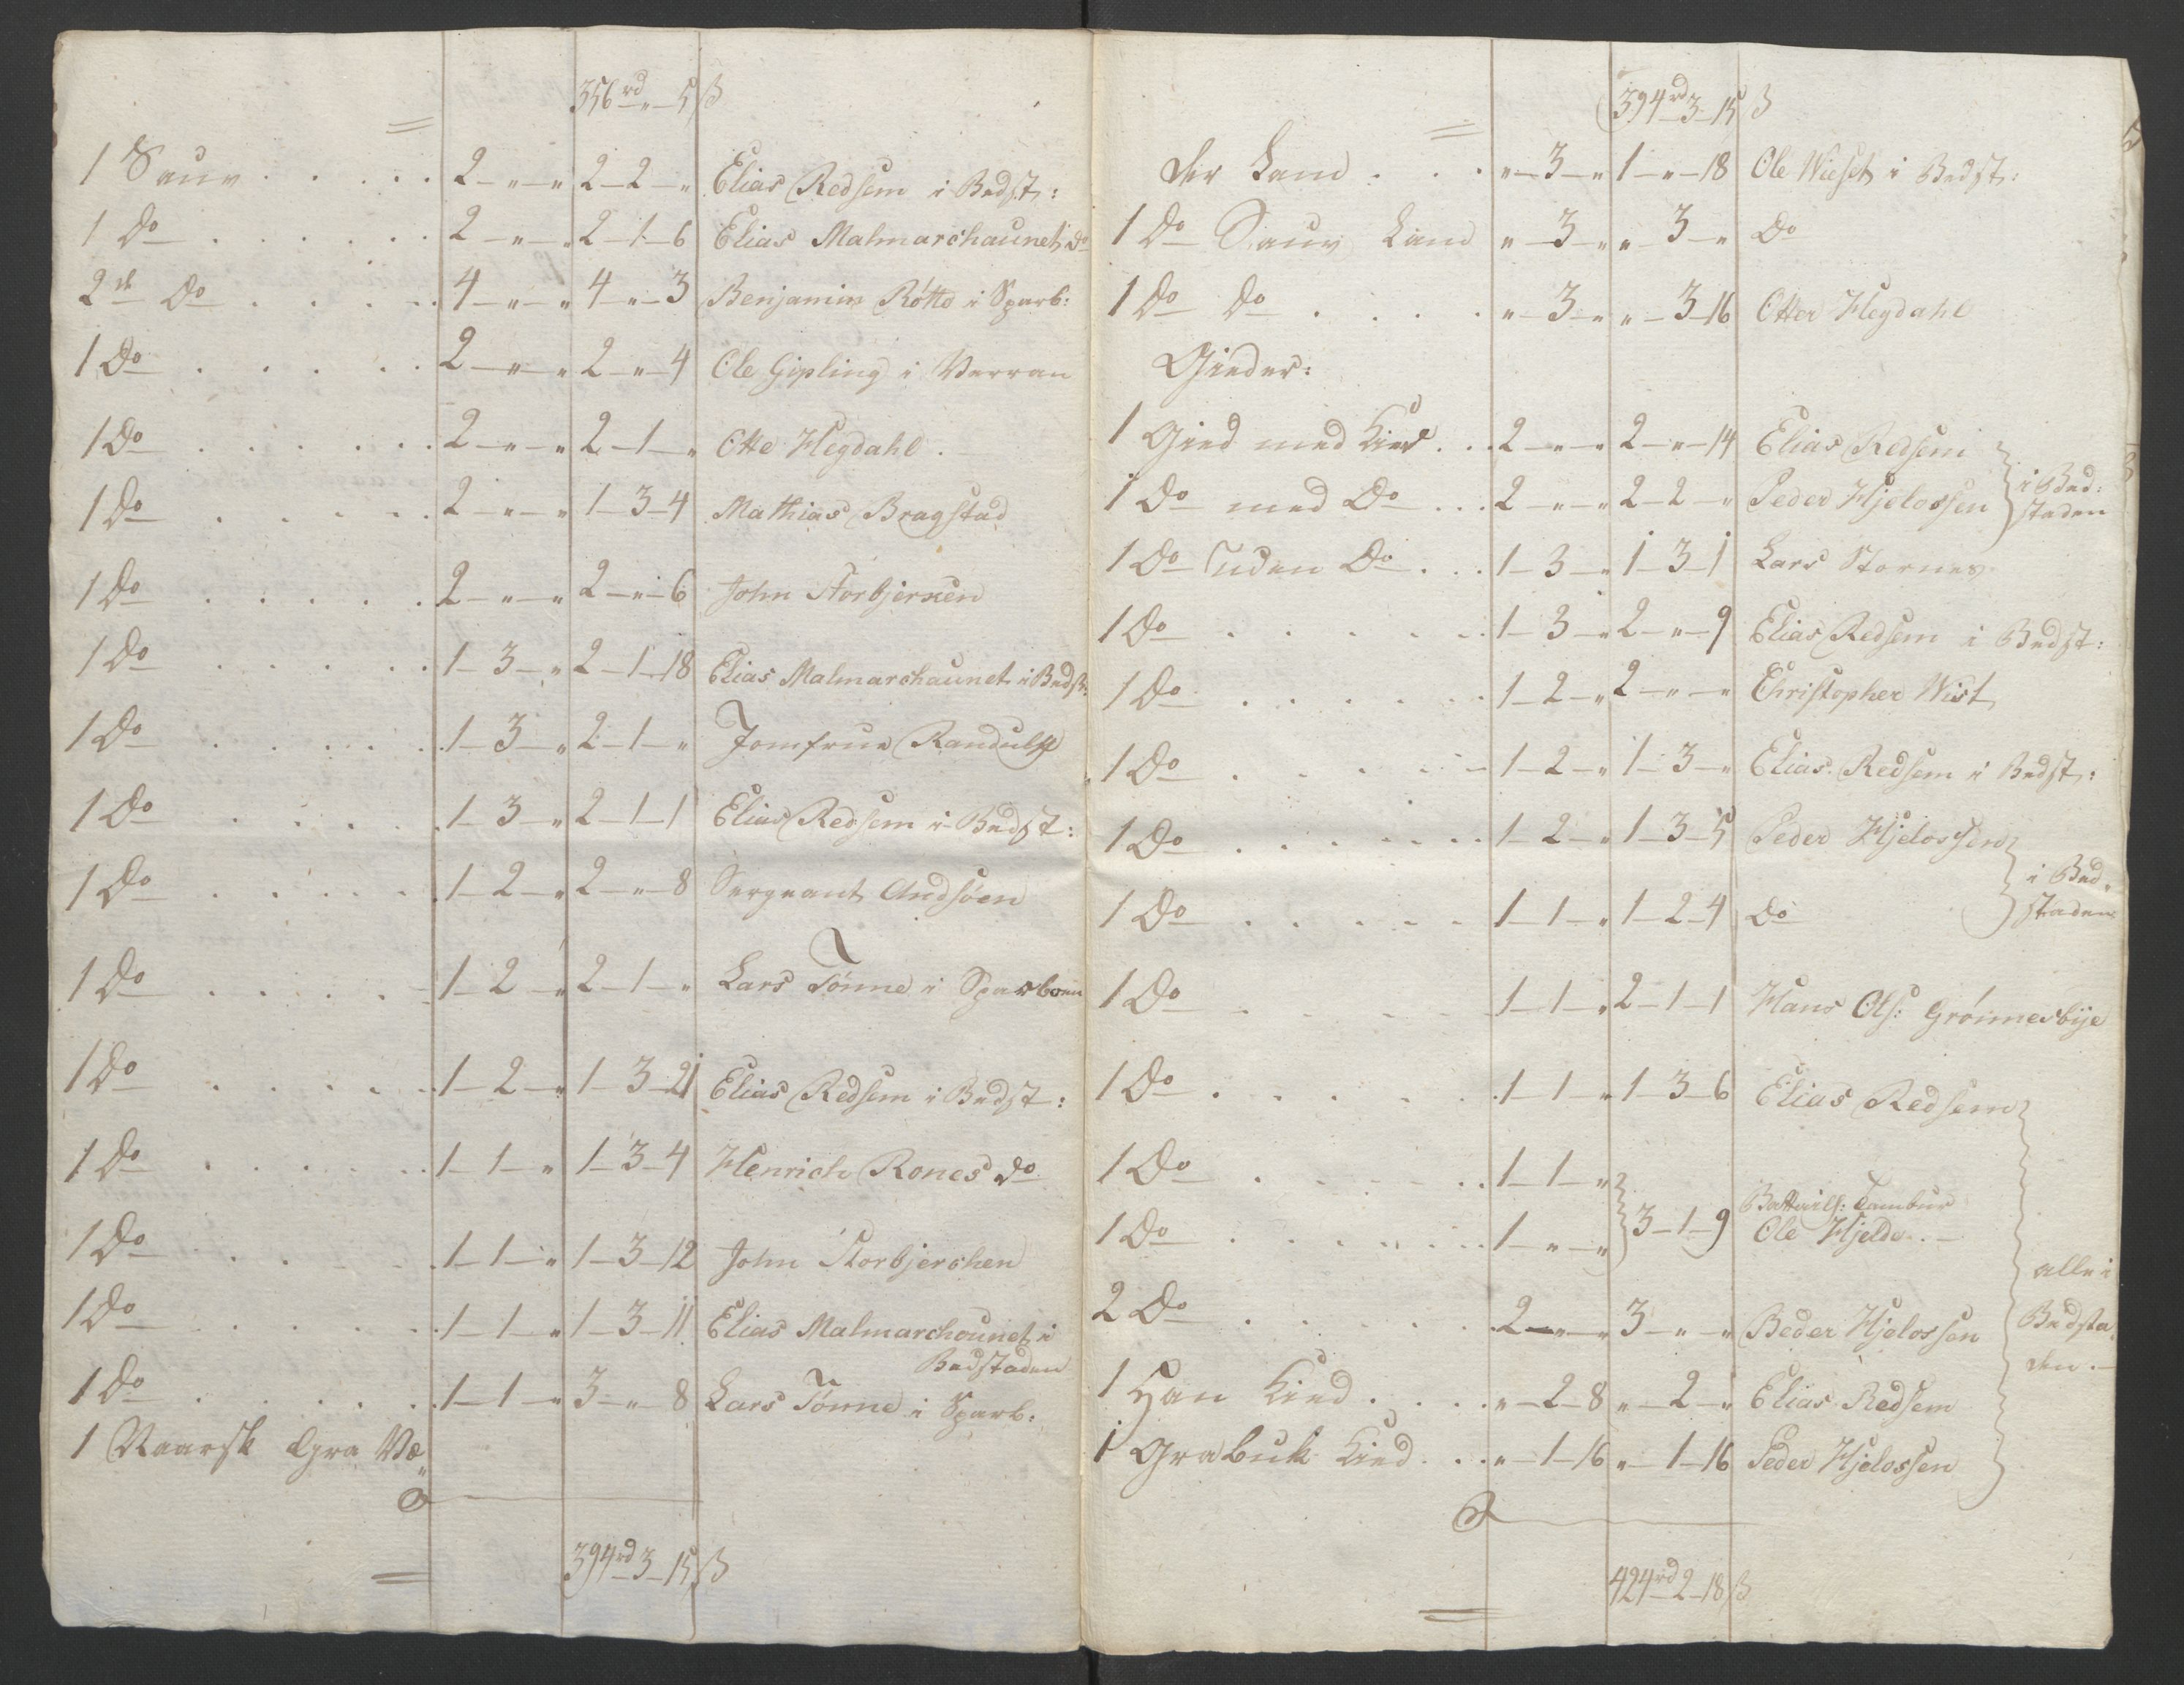 356 rd „ 5 ß
1 Sauv . . . . . 2 - „ - „ 2 - 2 - „ Elias Redsem i Bedst:
1 Do . . . . . . 2 - „ - „ 2 - 1 - 6 Elias Malmarchaunet do
2de Do . . . . . 4 - „ - „ 4 - „ - 3 Benjamin Røtte i Sparb:
1 Do . . . . . 2 - „ - „ 2 - „ - 4 Ole Gipling i Verran
1 Do . . . . . . 2 - „ - „ 2 - 1 - „ Otte Hegdahl . -
1 Do . . . . . 2 - „ - „ 1 - 3 - 4 Mathias Bragstad
1 Do . . . . . 2 - „ - „ 2 - „ - 6 John Storbjersen
1 Do . . . . . 1 - 3 - „ 2 - 1 - 18 Elias Malmarchaunet i Bedst:
1 Do . . . . . 1 - 3 - „ 2 - 1 - „ Jomfrue Randulff
1 Do . . . . . 1 - 3 - „ 2 - 1 - 1 Elias Redsem i Bedst:
1 Do . . . . . 1 - 2 - „ 2 - „ - 8 Sergeant Andsøen
1 Do . . . . . 1 - 2 - „ 2 - 1 - „ Lars Tønne i Sparboen
1 Do . . . . . 1 - 2 - „ 1 - 3 - 21 Elias Redsem i Bedst:
1 Do . . . . . 1 - 1 - „ 1 - 3 - 4 Henrich Rones do
1 Do . . . . . 1 - 1 - „ 1 - 3 - 12 John Storbjerchen
1 Do . . . . . 1 - 1 - „ 1 - 3 - 11 Elias Malmarchounet i
Bedstaden
1 Do . . . . . 1 - 1 - „ 3 - „ - 8 Lars Tønne i Sparb:
1 Naarsk Gra Væ„
394 rd 3 - 15 ß
394 rd 3 - 15 ß
der Lam . . . „ - 3 - „ 1 - „ - 18 Ole Wieset i Bedst:
1 Do Sauv Lam „ - 3 - „ „ - 3 - „ Do
1 Do Do . . . . „ - 3 - „ „ - 3 - 16 Otter Hegdahl
Gieder:
1 Gied med Kied . . . 2 - „ - „ 2 - „ - 14 Elias Redsem
1 Do med Do . . . 2 - „ - „ 2 - 2 - „ Peder Hjelossen } i Bed:
staden
1 Do uden Do . . . 1 - 3 - „ 1 - 3 - 1 Lars Stornes
1 Do . . . . . 1 - 3 - „ 2 - „ - 9 Elias Redsem i Bedst:
1 Do . . . . . 1 - 2 - „ 2 - „ - „ Christopher Wist
1 Do . . . . . 1 - 2 - „ 1 - 3 - „ Elias Redsem i Bedst:
1 Do . . . . . 1 - 2 - „ 1 - 3 - 5 Peder Hjelossen
1 Do . . . . . 1 - 1 - „ 1 - 2 - 4 Do } i Bed„
staden
1 Do . . . . . 1 - 1 - „ 2 - 1 - 1 Hans Ols: Grønnesbye
1 Do . . . . . 1 - 1 - „ 1 - 3 - 6 Elias Redsem
1 Do . . . . . 1 - 1 - „
Battaill: Tambur
1 Do . . . . . 1 - „ - „ } 3 - 1 - 9 Ole Hjelde . -
2 Do . . . . . 2 - „ - „ 3 - „ - „ Peder Hjelossen
alle i
Bedsta„
den . -
1 Han Kied . . . . „ - 2 - 8 „ - 2 - „ Elias Redsem
1 Grabuk Kied . . . „ - 1 - 16 „ - 1 - 16 Peder Hjelossen
424 rd 2 - 18 ß